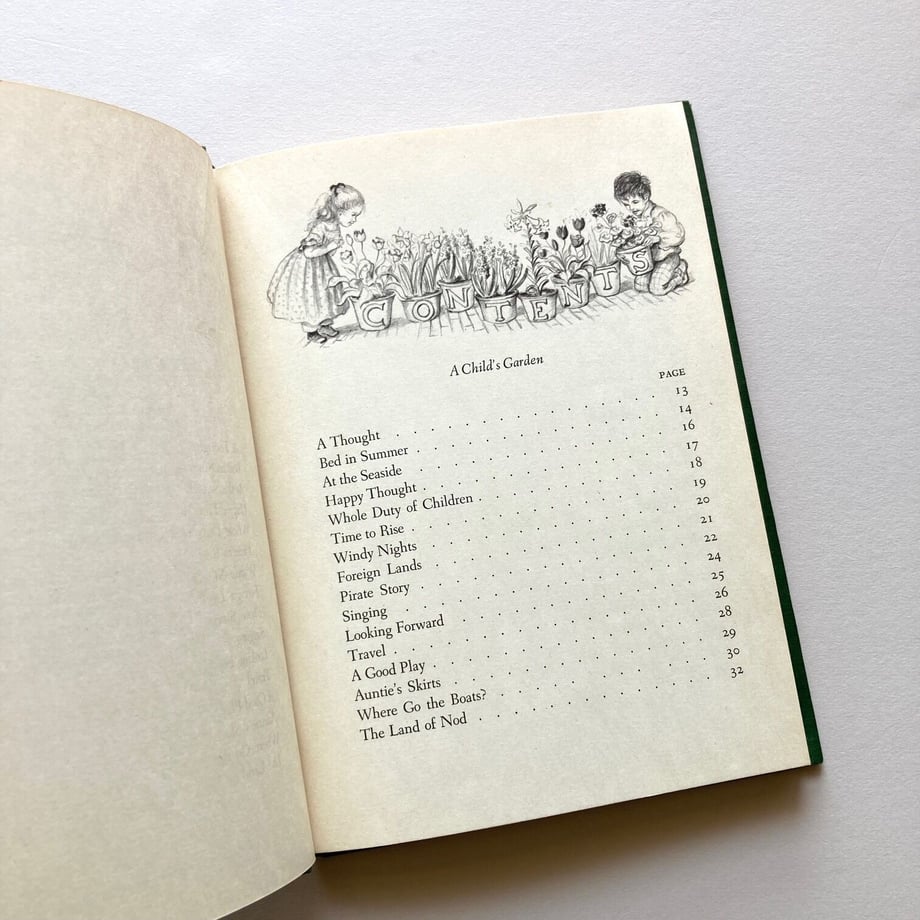 CONTENTS
A Child's Garden
PAGE
A Thought 13
Bed in Summer 14
At the Seaside 16
Happy Thought 17
Whole Duty of Children 18
Time to Rise 19
Windy Nights 20
Foreign Lands 21
Pirate Story 22
Singing 24
Looking Forward 25
Travel 26
A Good Play 28
Auntie's Skirts 29
Where Go the Boats? 30
The Land of Nod 32